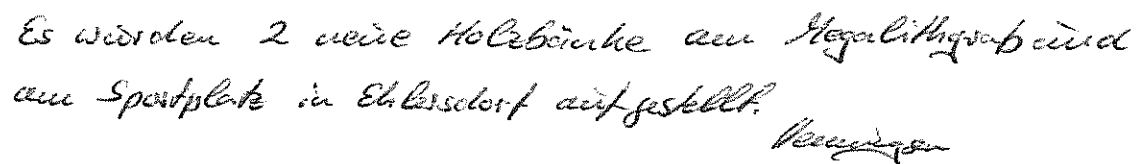 Es wurden 2 neue Holzbänke am Megalithgrab und
am Sportplatz in Ehlersdorf aufgestellt.